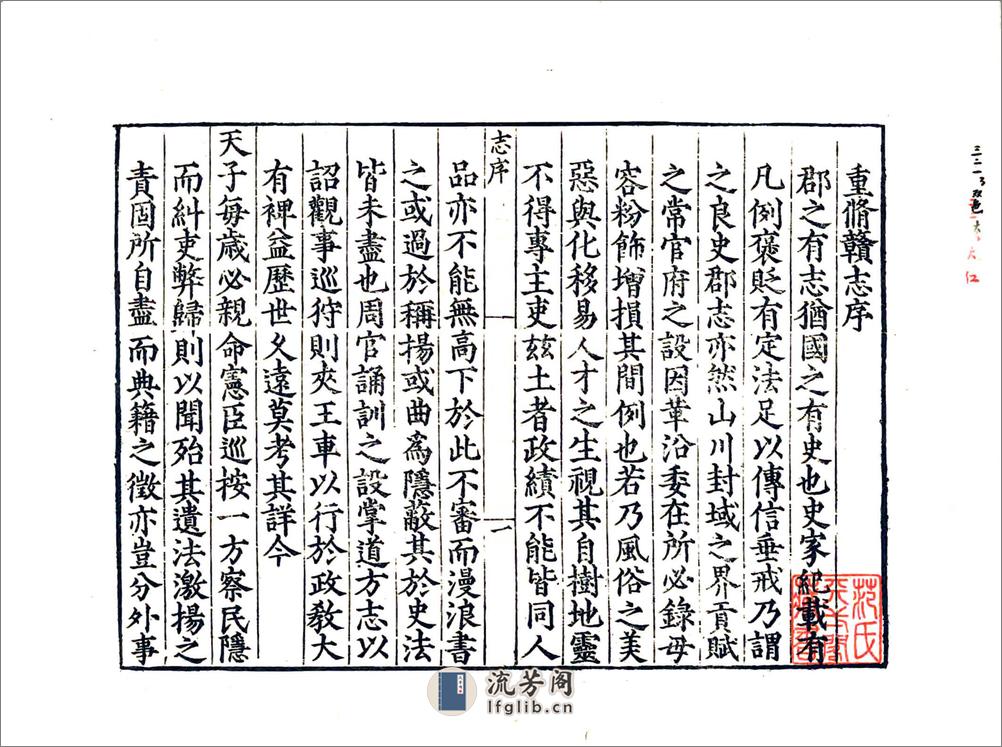 重脩贛志序
郡之有志猶國之有史也史家紀載有
凡例褒貶有定法足以傳信垂戒乃謂
之良史郡志亦然山川封域之界貢賦
之常官府之設因革沿委在所必錄毋
容粉飾增損其間例也若乃風俗之美
惡與化移易人才之生視其自樹地靈
不得專主吏玆土者政績不能皆同人
志序
一
品亦不能無高下於此不審而漫浪書
之或過於稱揚或曲爲隱蔽其於史法
皆未盡也周官誦訓之設掌道方志以
詔觀事巡狩則夾王車以行於政敎大
有裨益歷世久遠莫考其詳今
天子每歲必親命憲臣巡按一方察民隱
而糾吏弊歸則以聞殆其遺法激揚之
責固所自盡而典籍之徵亦豈分外事
范氏
流芳阁
lfglib.cn